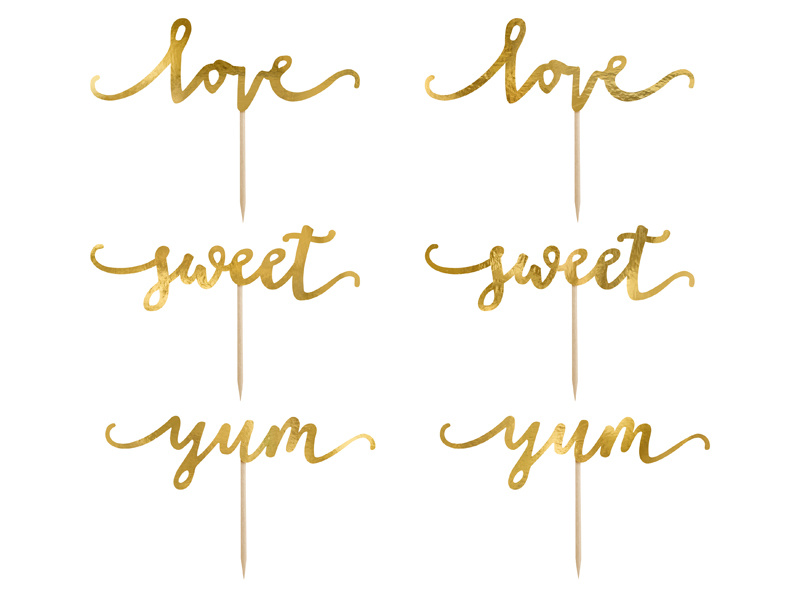 love love
sweet sweet
yum yum